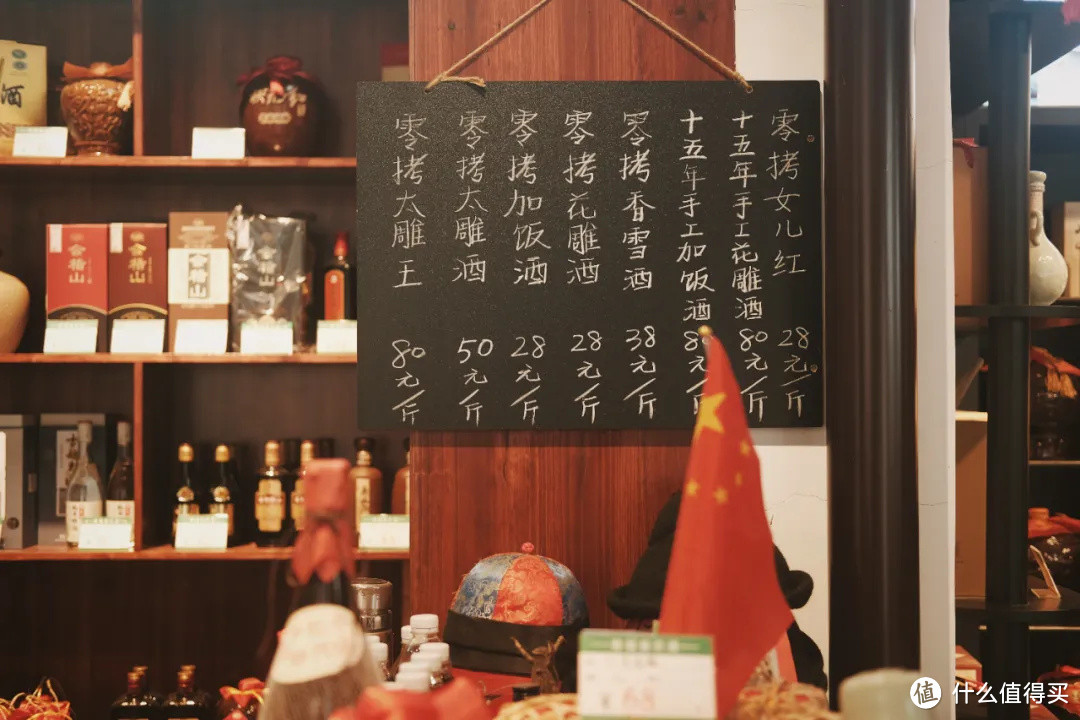 零拷女儿红 28元/斤
十五年手工花雕酒 80元/斤
十五年手工加饭酒 8元/斤
零拷香雪酒 38元/斤
零拷花雕酒 28元/斤
零拷加饭酒 28元/斤
零拷太雕酒 50元/斤
零拷太雕王 80元/斤
酒
状元红
会稽山
会稽山
会稽山
会稽山
值 什么值得买